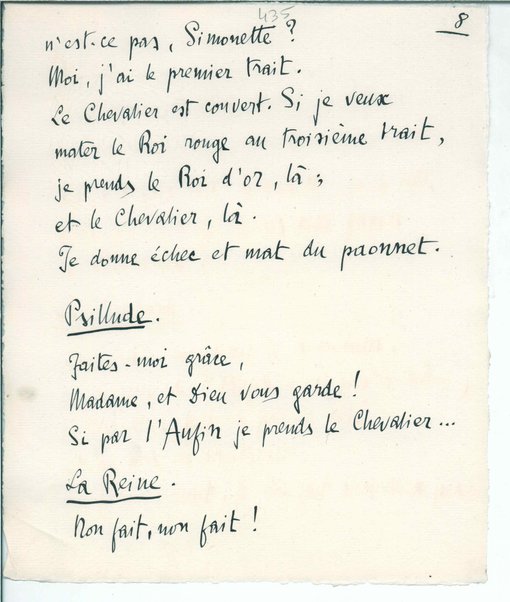 435
8
n'est-ce pas, Simonette ?
Moi, j'ai le premier trait.
Le Chevalier est couvert. Si je veux
mater le Roi rouge au troisième trait,
je prends le Roi d'or, là ;
et le Chevalier, là.
Je donne échec et mat du paonnet.
Psillude.
Faites-moi grâce,
Madame, et Dieu vous garde !
Si par l'Aufin je prends le Chevalier...
La Reine.
Non fait, non fait !